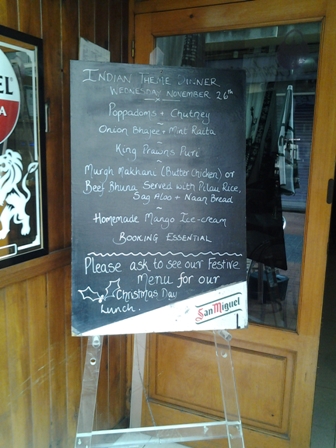 Indian Theme Dinner
Wednesday November 26th
Poppadoms + Chutney
~
Onion Bhajee + Mint Raita
~
King Prawns Puré
~
Murgh Makhani (Butter Chicken) or
Beef Bhuna Served with Pilau Rice,
Sag Aloo + Naan Bread
~
Homemade Mango Ice-cream
Booking Essential
Please ask to see our Festive
Menu for our
Christmas Day
Lunch.
San Miguel
EL
A